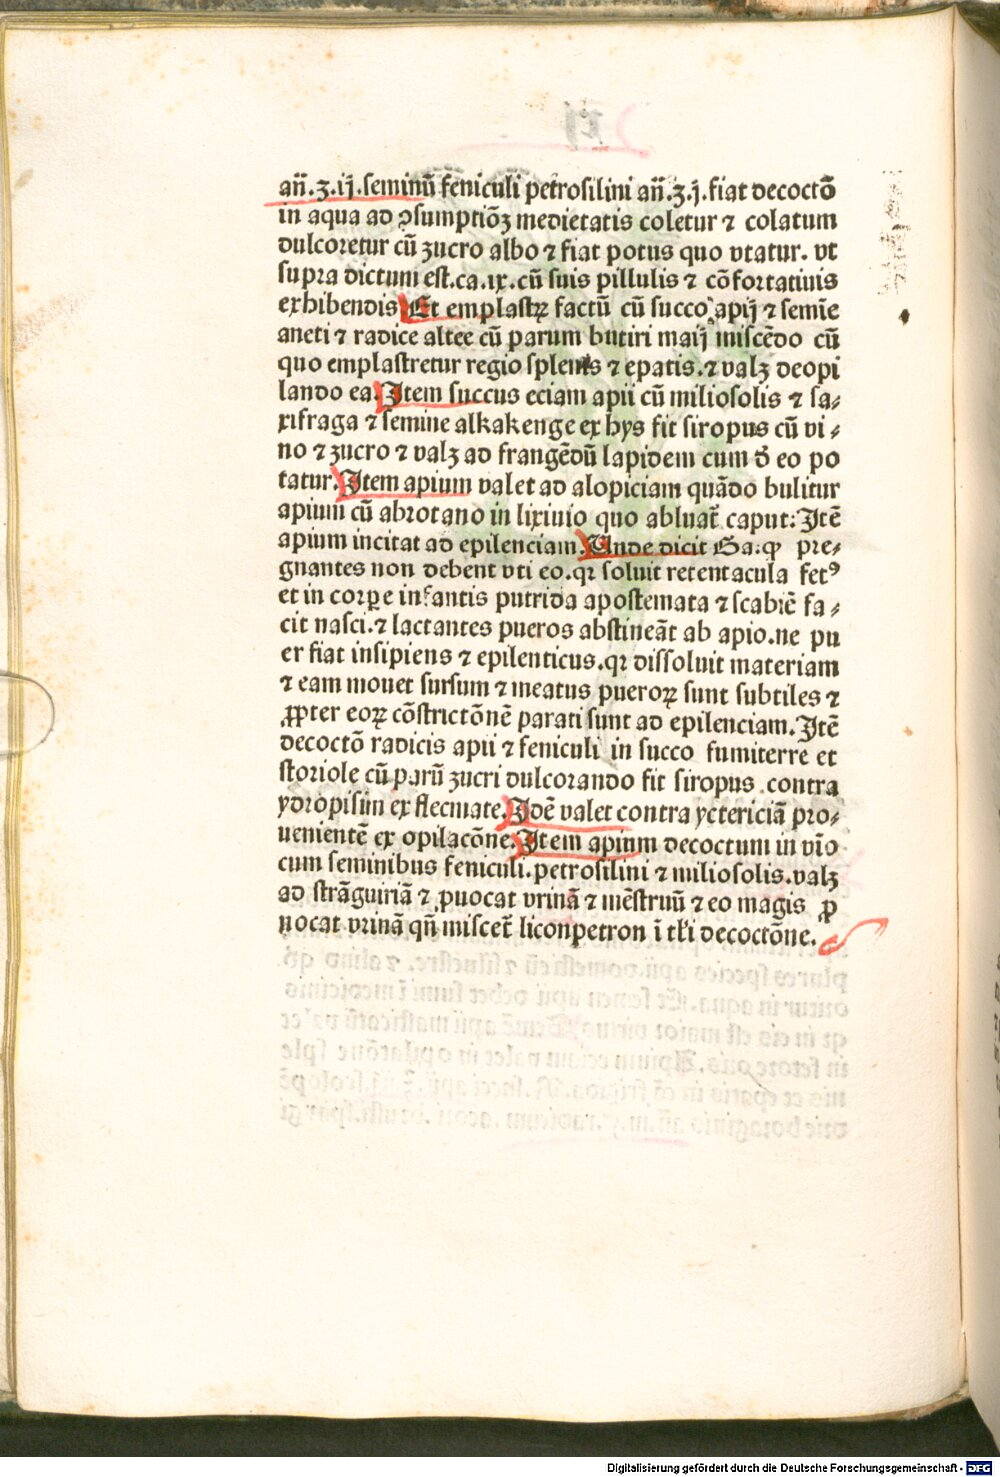 an̄.ʒ.ij.seminū feniculi petrosilini an̄.ʒ.j.fiat decoctō
in aqua ad ꝯsumptiōꝫ medietatis coletur ⁊ colatum
dulcoretur cū zucro albo ⁊ fiat potus quo vtatur. vt
supra dictum est.ca.ix.cū suis pillulis ⁊ cōfortatiuis
exhibendis Et emplastꝝ factū cū succo apij ⁊ semīe
aneti ⁊ radice altee cū parum butiri maij miscēdo cū
quo emplastretur regio splenis ⁊ epatis.⁊ valꝫ deopi
lando ea.Item succus eciam apii cū miliosolis ⁊ sa⸗
xifraga ⁊ semine alkakenge ex hys fit siropus cū vi⸗
no ⁊ zucro ⁊ valꝫ ad frangēdū lapidem cum đ eo po
tatur.Item apium valet ad alopiciam quādo bulitur
apium cū abrotano in lixiuio quo abluat̄ caput:Itē
apium incitat ad epilenciam.Unde dicit Ga.ꝙ pre⸗
gnantes non debent vti eo.qꝛ soluit retentacula fetꝰ
et in corpe infantis putrida apostemata ⁊ scabiē fa⸗
cit nasci.⁊ lactantes pueros abstineāt ab apio.ne pu
er fiat insipiens ⁊ epilenticus.qꝛ dissoluit materiam
⁊ eam mouet sursum ⁊ meatus pueroꝝ sunt subtiles ⁊
ꝓpter eoꝝ cōstrictōnē parati sunt ad epilenciam.Itē
decoctō radicis apii ⁊ feniculi in succo fumiterre et
storiole cū parū zucri dulcorando fit siropus contra
ydropisim ex flecmate.Idē valet contra yctericiā pro⸗
uenientē ex opilacōne.Item apium decoctum in vīo
cum seminibus feniculi.petrosilini ⁊ miliosolis.valꝫ
ad strāguiriā ⁊ ꝓuocat vrinā ⁊ mēstruū ⁊ eo magis ꝓ
uocat vrinā qn̄ miscet̄ liconpetron ī tłi decoctōne.
Digitalisierung gefördert durch die Deutsche Forschungsgemeinschaft - DFG